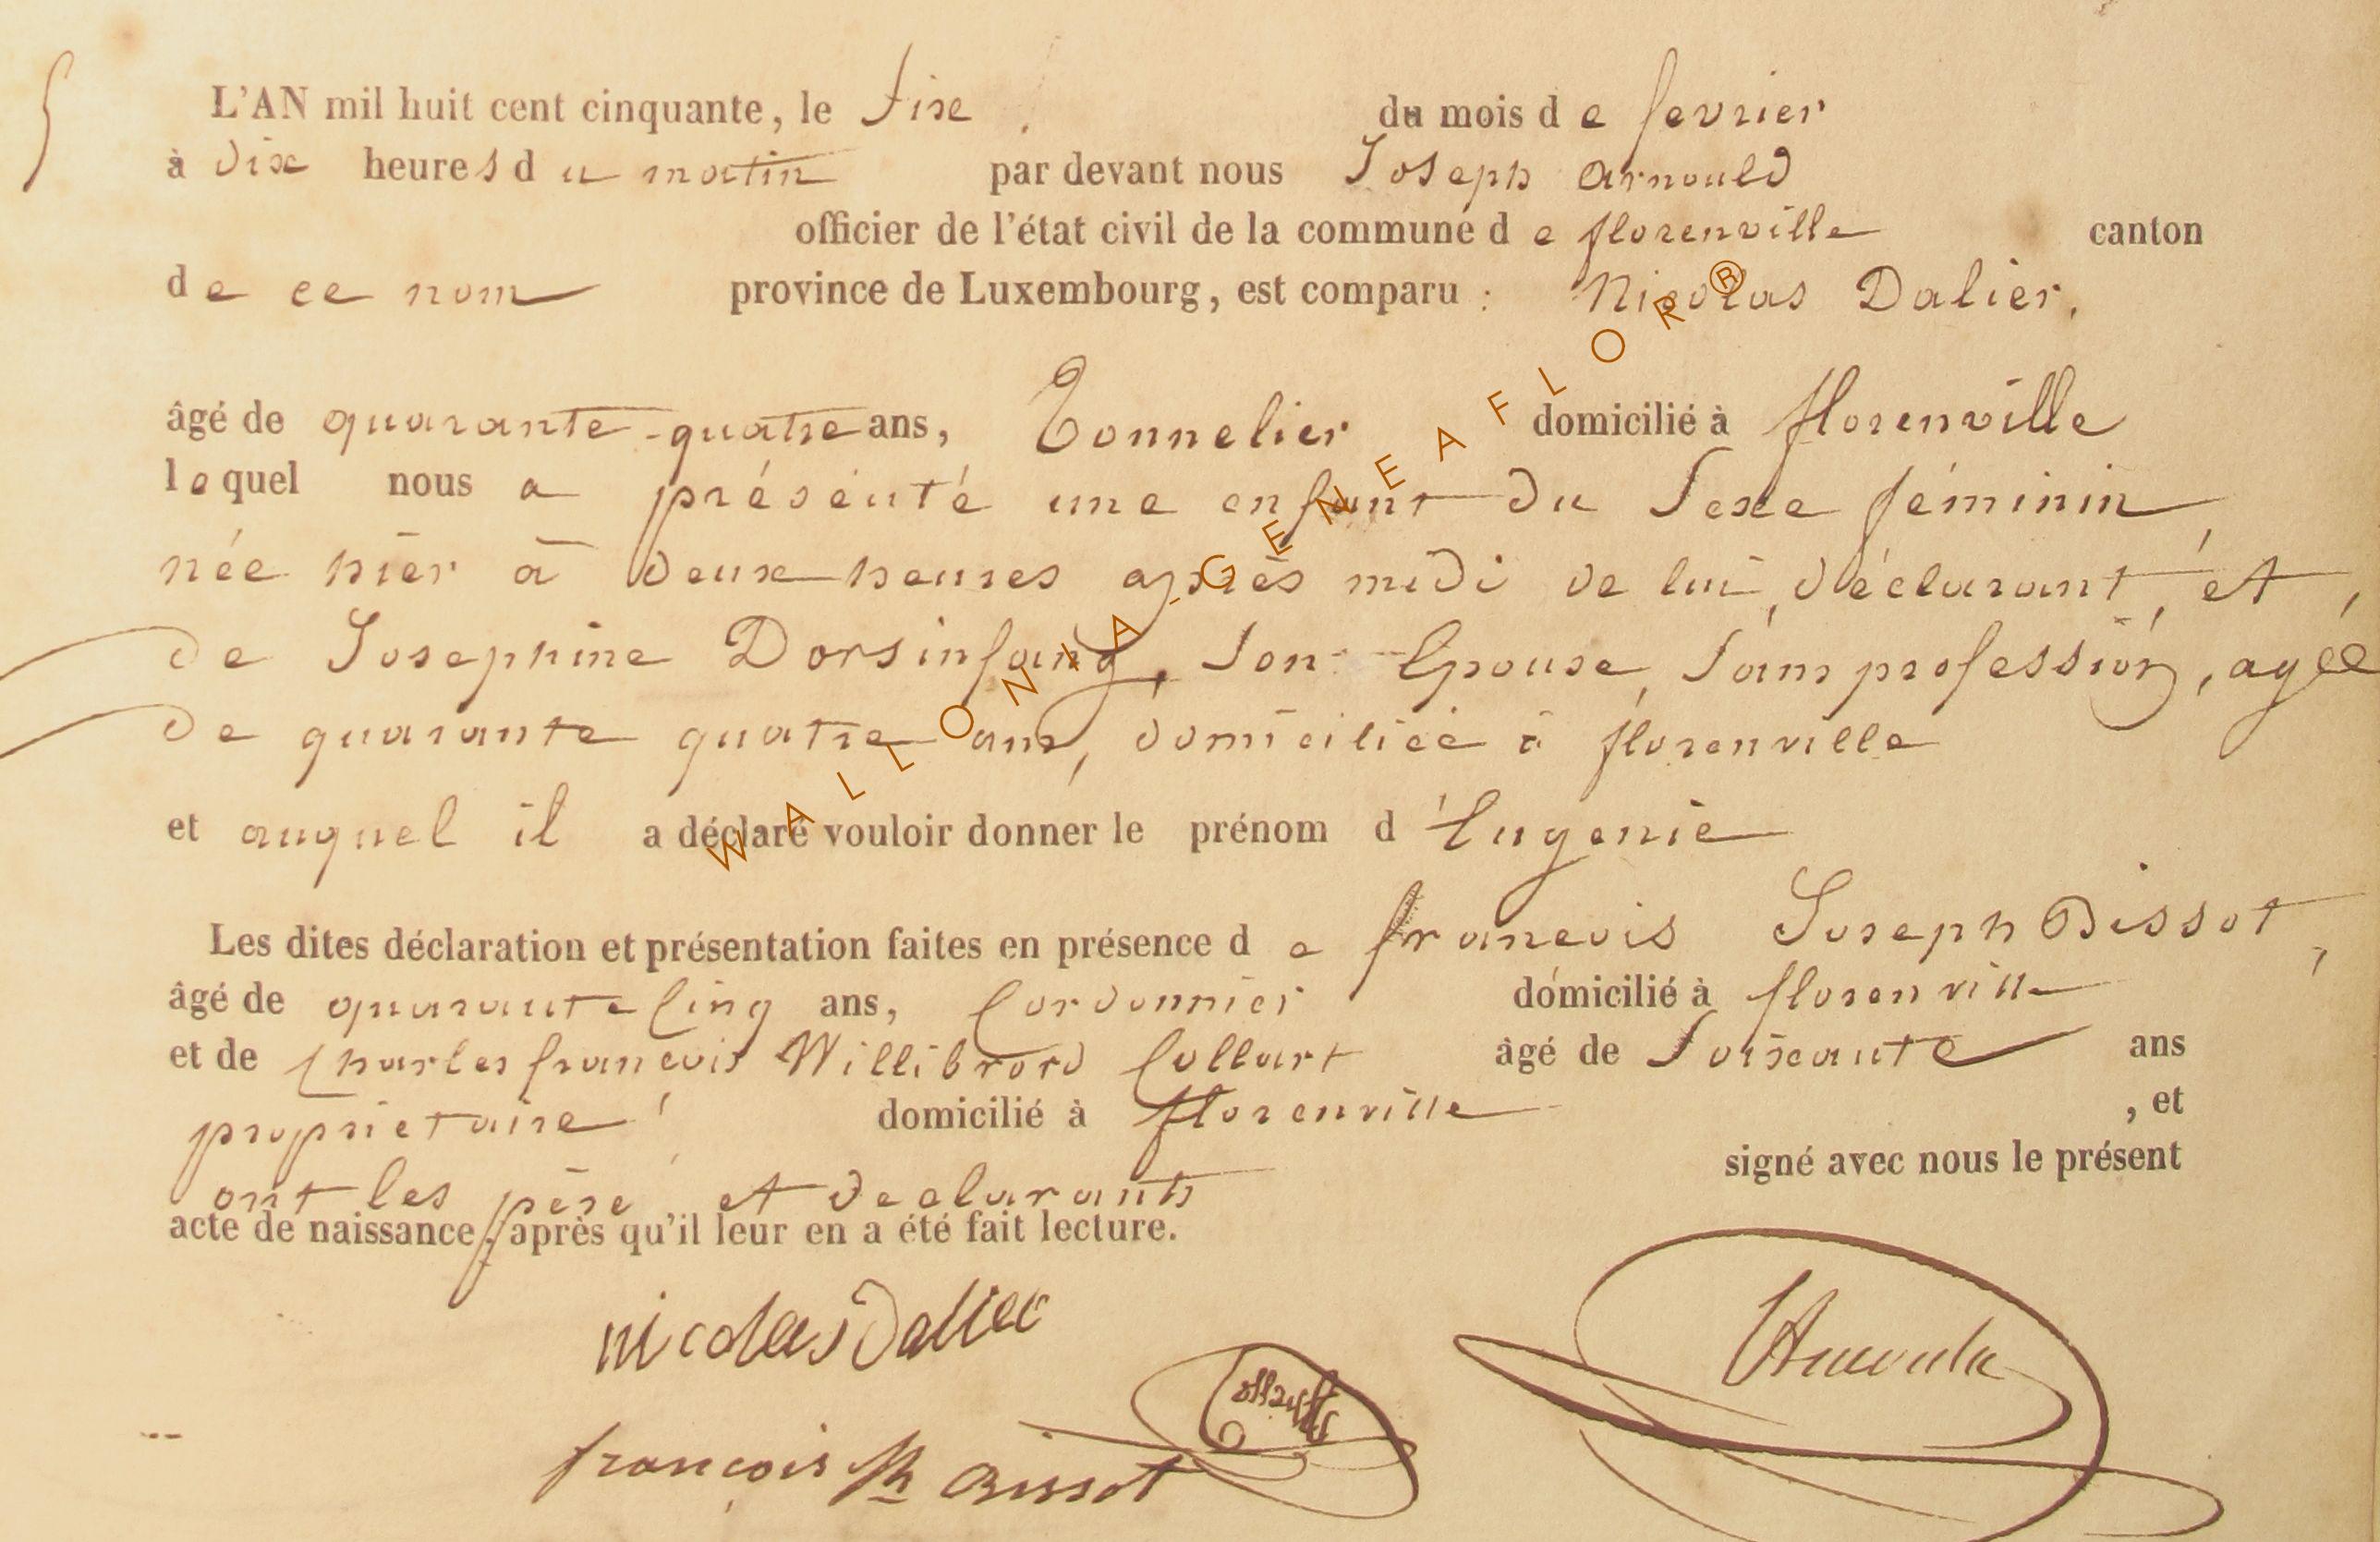 5
L'AN mil huit cent cinquante, le six du mois de fevrier
à dix heures du matin par devant nous Joseph arnould
officier de l'état civil de la commune de florenville canton
de ce nom province de Luxembourg, est comparu : Nicolas Dalier,
âgé de quarante-quatre ans, Tonnelier domicilié à florenville
lequel nous a présenté une enfant du sexe féminin,
née hier à deux heures après midi de lui, déclarant, et,
de Josephine Dorsinfang, son Epouse, sans profession, agée
de quarante quatre ans, domiciliée à florenville
et auquel il a déclaré vouloir donner le prénom d'Eugenie
Les dites déclaration et présentation faites en présence de francois Joseph Bissot,
âgé de quarante cinq ans, Cordonnier domicilié à florenville
et de Charles francois Willibrord Collart âgé de soixante ans
propriétaire domicilié à florenville , et
signé avec nous le présent
ont les père et declarants
acte de naissance, après qu'il leur en a été fait lecture.
nicolas Dallier
Collart
françois Jh Bissot
WALLONIA-GENEAFLOR®